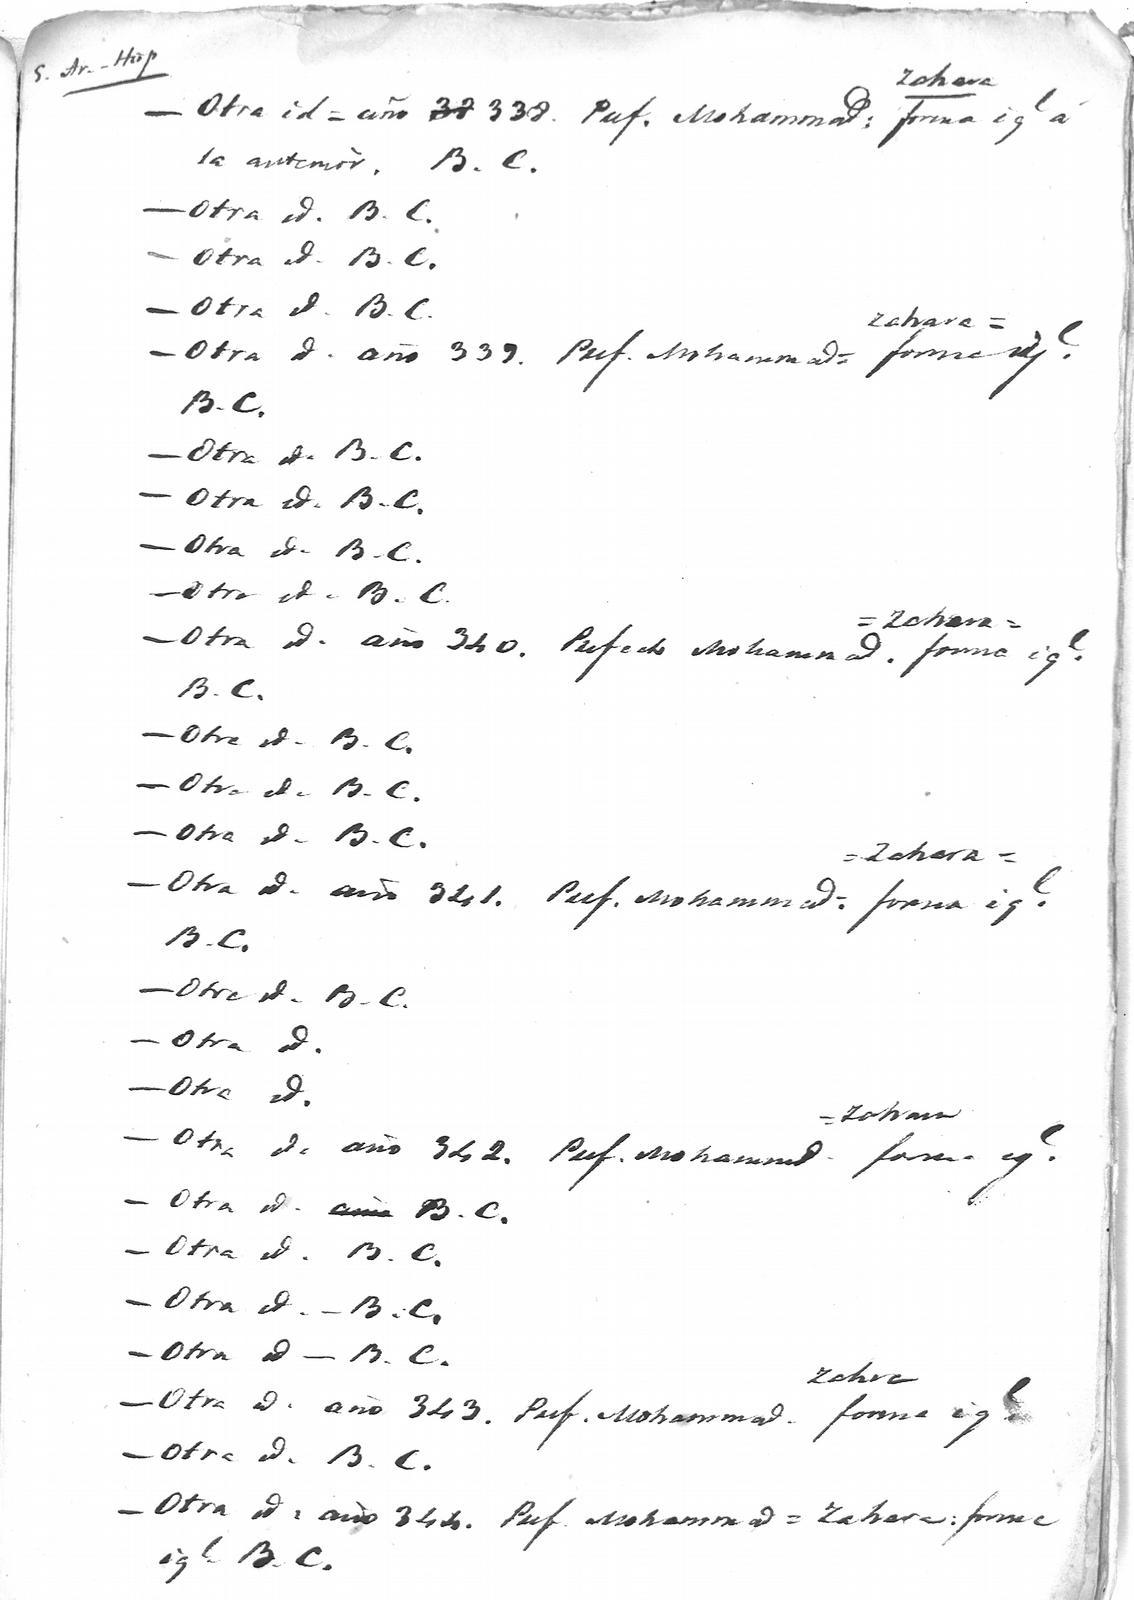 S. Ar.-Hisp
Zahara
— Otra id = año 38 338. Pref. Mohammad: forma igl á
la anterior. B. C.
— Otra id. B. C.
— Otra id. B. C.
— Otra id. B. C.
Zahara =
— Otra id. año 339. Pref. Mohammad = forma igl.
B. C.
— Otra id. B. C.
— Otra id. B. C.
— Otra id. B. C.
— Otra id. B. C.
= Zahara =
— Otra id. año 340. Prefecto Mohammad. forma igl.
B. C.
— Otra id. B. C.
— Otra id. B. C.
— Otra id. B. C.
= Zahara =
— Otra id. año 341. Pref. Mohammad = forma igl.
B. C.
— Otra id. B. C.
— Otra id.
— Otra id.
= Zahara
— Otra id. año 342. Pref. Mohammad. forma igl.
— Otra id. año B. C.
— Otra id. B. C.
— Otra id. – B. C.
— Otra id — B. C.
Zahra
— Otra id. año 343. Pref. Mohammad. forma igl
— Otra id. B. C.
— Otra id. año 344. Pref. Mohammad = Zahara: forma
igl B. C.